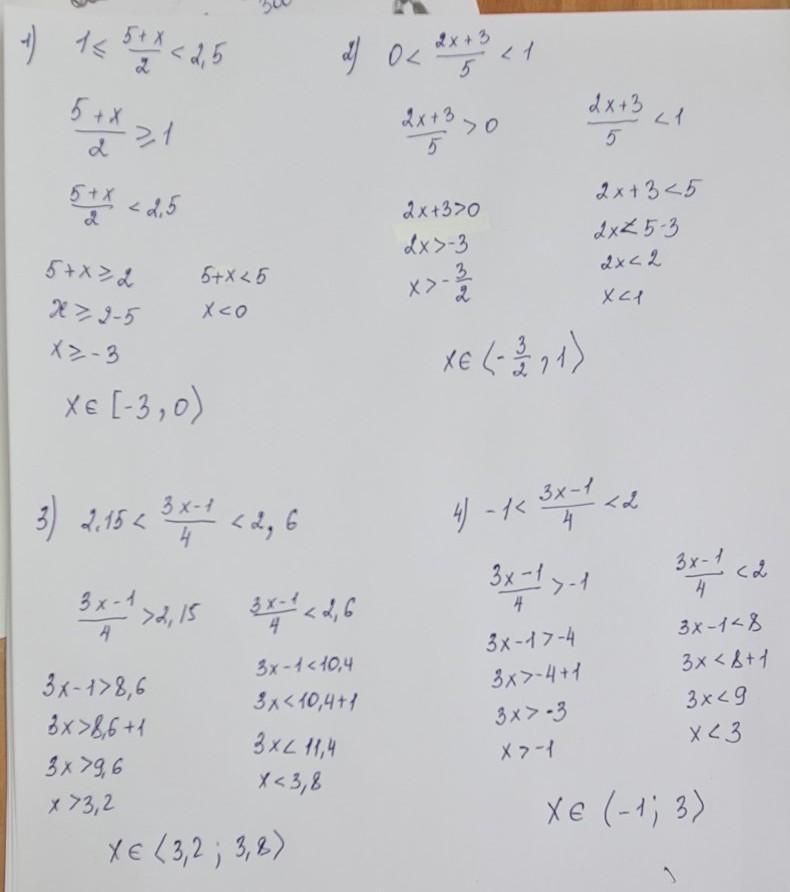 1) 1 ≤ (5+x)/2 < 2,5
(5+x)/2 ≥ 1
(5+x)/2 < 2,5
5+x ≥ 2
x ≥ 2-5
x ≥ -3
5+x < 5
x < 0
x ∈ [-3, 0)
2) 0 < (2x+3)/5 < 1
(2x+3)/5 > 0
2x+3>0
2x>-3
x>-3/2
(2x+3)/5 < 1
2x+3<5
2x<5-3
2x<2
x<1
x ∈ (-3/2, 1)
3) 2,15 < (3x-1)/4 < 2,6
(3x-1)/4 > 2,15
3x-1>8,6
3x>8,6+1
3x>9,6
x>3,2
(3x-1)/4 < 2,6
3x-1<10,4
3x<10,4+1
3x<11,4
x<3,8
x ∈ (3,2; 3,8)
4) -1 < (3x-1)/4 < 2
(3x-1)/4 > -1
3x-1>-4
3x>-4+1
3x>-3
x>-1
(3x-1)/4 < 2
3x-1<8
3x<8+1
3x<9
x<3
x ∈ (-1; 3)